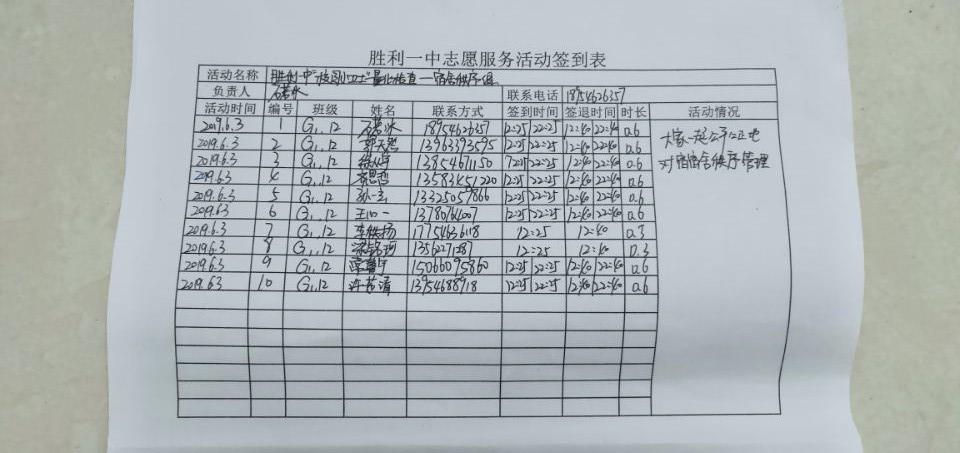 胜利一中志愿服务活动签到表
活动名称 胜利一中"校园小卫士"量化检查—宿舍秩序组
负责人 联系电话 18954626357
活动时间 编号 班级 姓名 联系方式 签到时间 签退时间 时长 活动情况
2019.6.3 1 G1.12 18954626357 12:25 22:25 12:40 22:40 0.6
2019.6.3 2 G1.12 13963393595 12:25 22:25 12:40 22:40 0.6
2019.6.3 3 G1.12 13854671150 22:25 12:40 22:40 0.6
2019.6.3 4 G1.12 12:25 22:25 12:40 22:40 0.6
2019.6.3 5 G1.12 孙一 13325057866 12:25 22:25 12:40 22:40 0.6
2019.6.3 6 G1.12 12:25 22:25 12:40 22:40 0.6
2019.6.3 7 G1.12 17754636118 12:25 12:40 0.3
2019.6.3 8 G1.12 12:25 12:40 0.3
2019.6.3 9 G1.12 15066095860 12:25 22:25 12:40 22:40 0.6
2019.6.3 10 G1.12 13954688918 12:25 22:25 12:40 22:40 0.6
大家一起公平公正地
对宿舍秩序管理